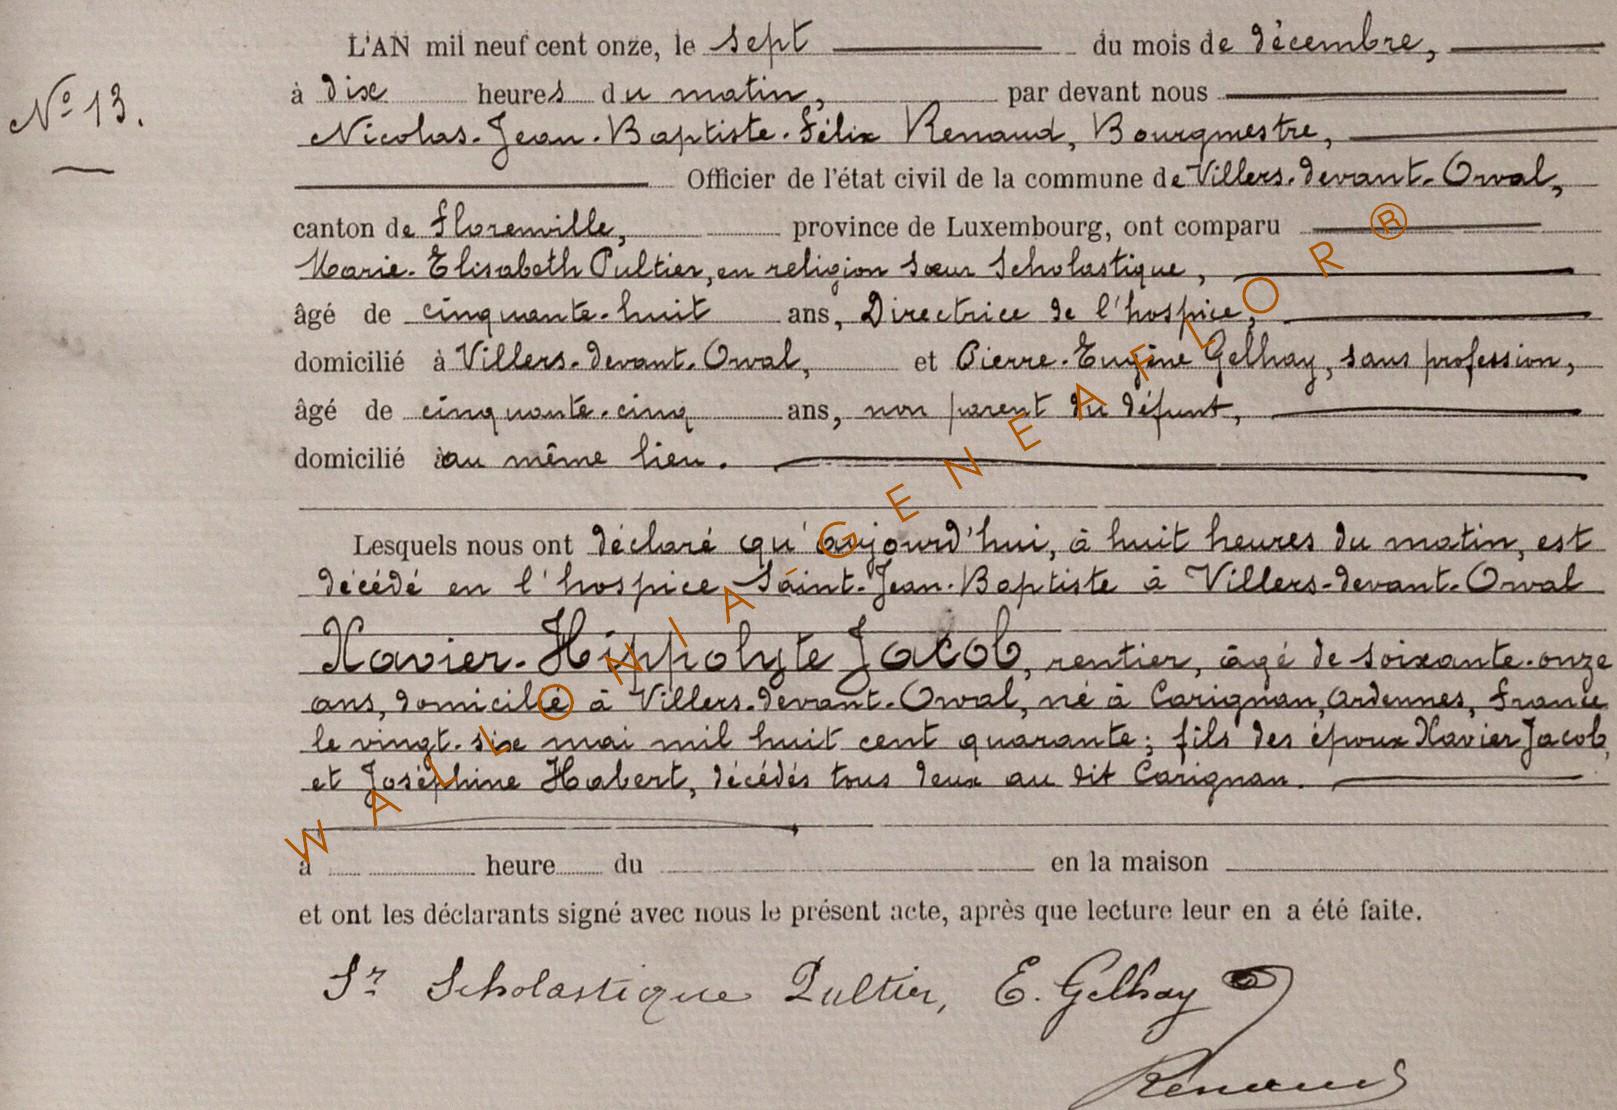 L'AN mil neuf cent onze, le sept du mois de décembre,
à dix heures du matin, par devant nous
N° 13.
Nicolas-Jean-Baptiste-Félix Renaud, Bourgmestre,
Officier de l'état civil de la commune de Villers-devant-Orval,
canton de Florenville, province de Luxembourg, ont comparu
Marie-Elisabeth Pultier, en religion sœur Scholastique,
âgé de cinquante-huit ans, Directrice de l'hospice,
domicilié à Villers-devant-Orval, et Pierre-Eugène Gelhay, sans profession,
âgé de cinquante-cinq ans, non parent du défunt,
domicilié au même lieu.
Lesquels nous ont déclaré qu'aujourd'hui, à huit heures du matin, est
décédé en l'hospice Saint-Jean-Baptiste à Villers-devant-Orval
Xavier-Hippolyte Jacob, rentier, âgé de soixante-onze
ans, domicilié à Villers-devant-Orval, né à Carignan, Ardennes, France
le vingt-six mai mil huit cent quarante; fils des époux Xavier Jacob,
et Joséphine Habert, décédés tous deux au dit Carignan.
à heure du en la maison
et ont les déclarants signé avec nous le présent acte, après que lecture leur en a été faite.
Sr Scholastique Pultier, E. Gelhay
Renaud
WALLONIAGENEAFLOR®